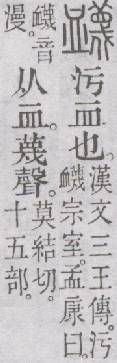 衊
污血也。
漢文三王傳。污
衊宗室。孟康曰。
衊音
漫。
从血。蔑聲。
莫結切。
十五部。